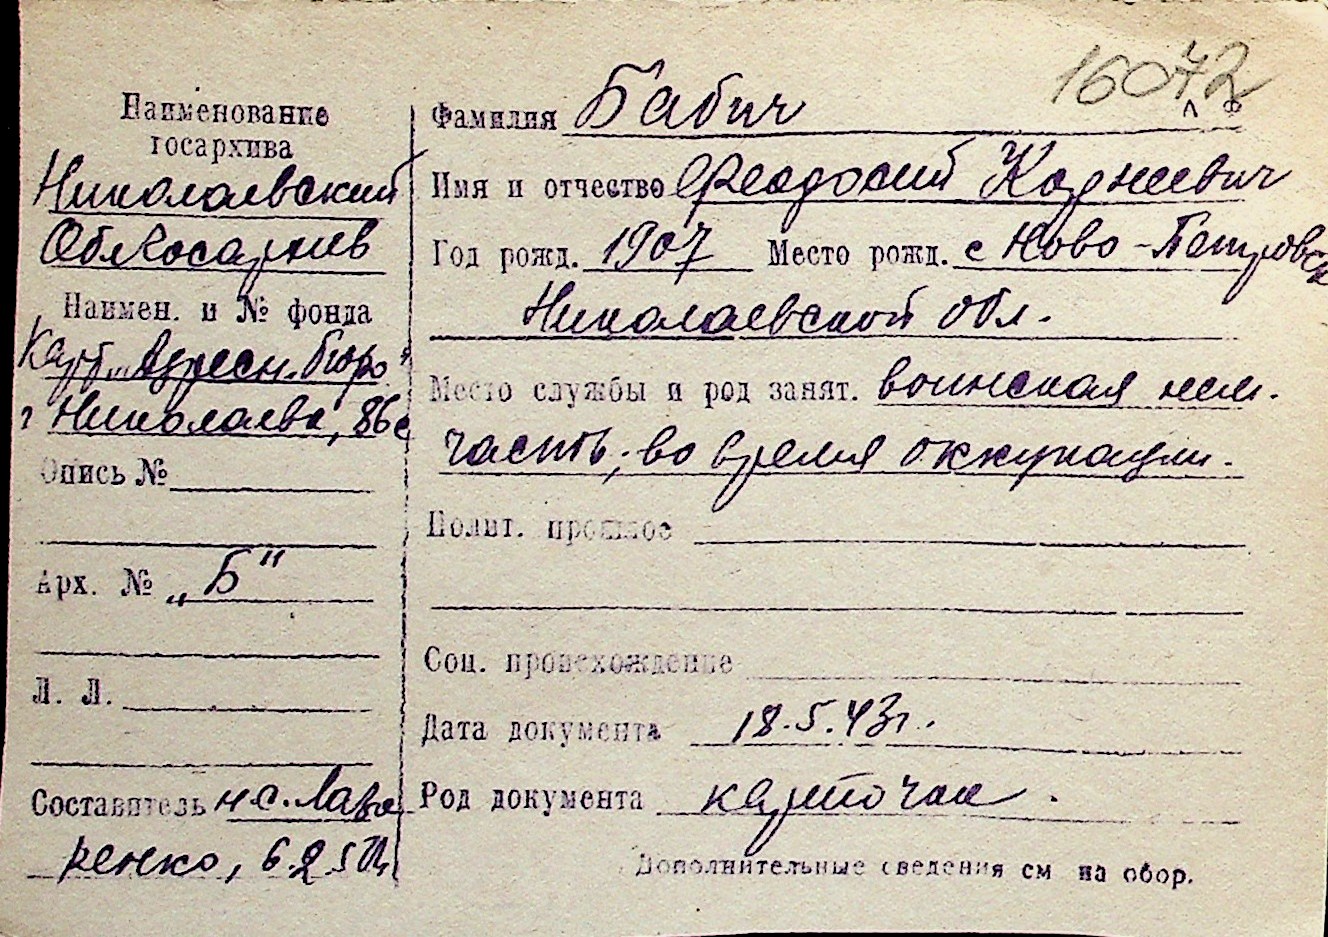 16072
Л Ф
Наименование
госархива
Николаевский
Облгосархив
Наимен. и № фонда
Карт. „Адресн. бюро"
г Николаева, 86с
Опись №
Арх. № „Б"
Л. Л.
Составитель н.с. Лава
ренко, 6.2.51г
Фамилия Бабич
Имя и отчество Феодосий Корнеевич
Год рожд. 1907 Место рожд. с Ново-Петровск
Николаевской обл.
Место службы и род занят. воинская нем.
часть, во время оккупации.
Полит. прошлое
Соц. происхождение
Дата документа 18.5.43г.
Род документа карточка.
Дополнительные сведения см на обор.